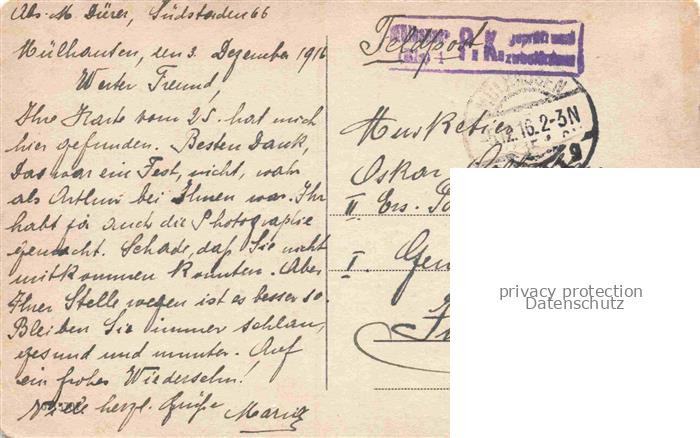 Abs. M. Dürer, Südstaden 66
Mülhausen, den 3. Dezember 1916
Werter Freund,
Ihre Karte vom 25. hat mich
hier gefunden. Besten Dank,
Das war ein Fest, nicht, wahr
als Arthur bei Ihnen war. Ihr
habt ja auch die Photographie
gemacht. Schade, daß Sie nicht
mitkommen konnten. Aber
Ihrer Stelle wegen ist es besser so.
Bleiben Sie immer schlau,
gesund und munter. Auf
ein frohes Wiedersehn!
Viele herzl. Grüße
Feldpost
P.K. geprüft und
zu befördern
12.16.2-3N
Musketier
Oskar
II Ers.
I.
privacy protection
Datenschutz